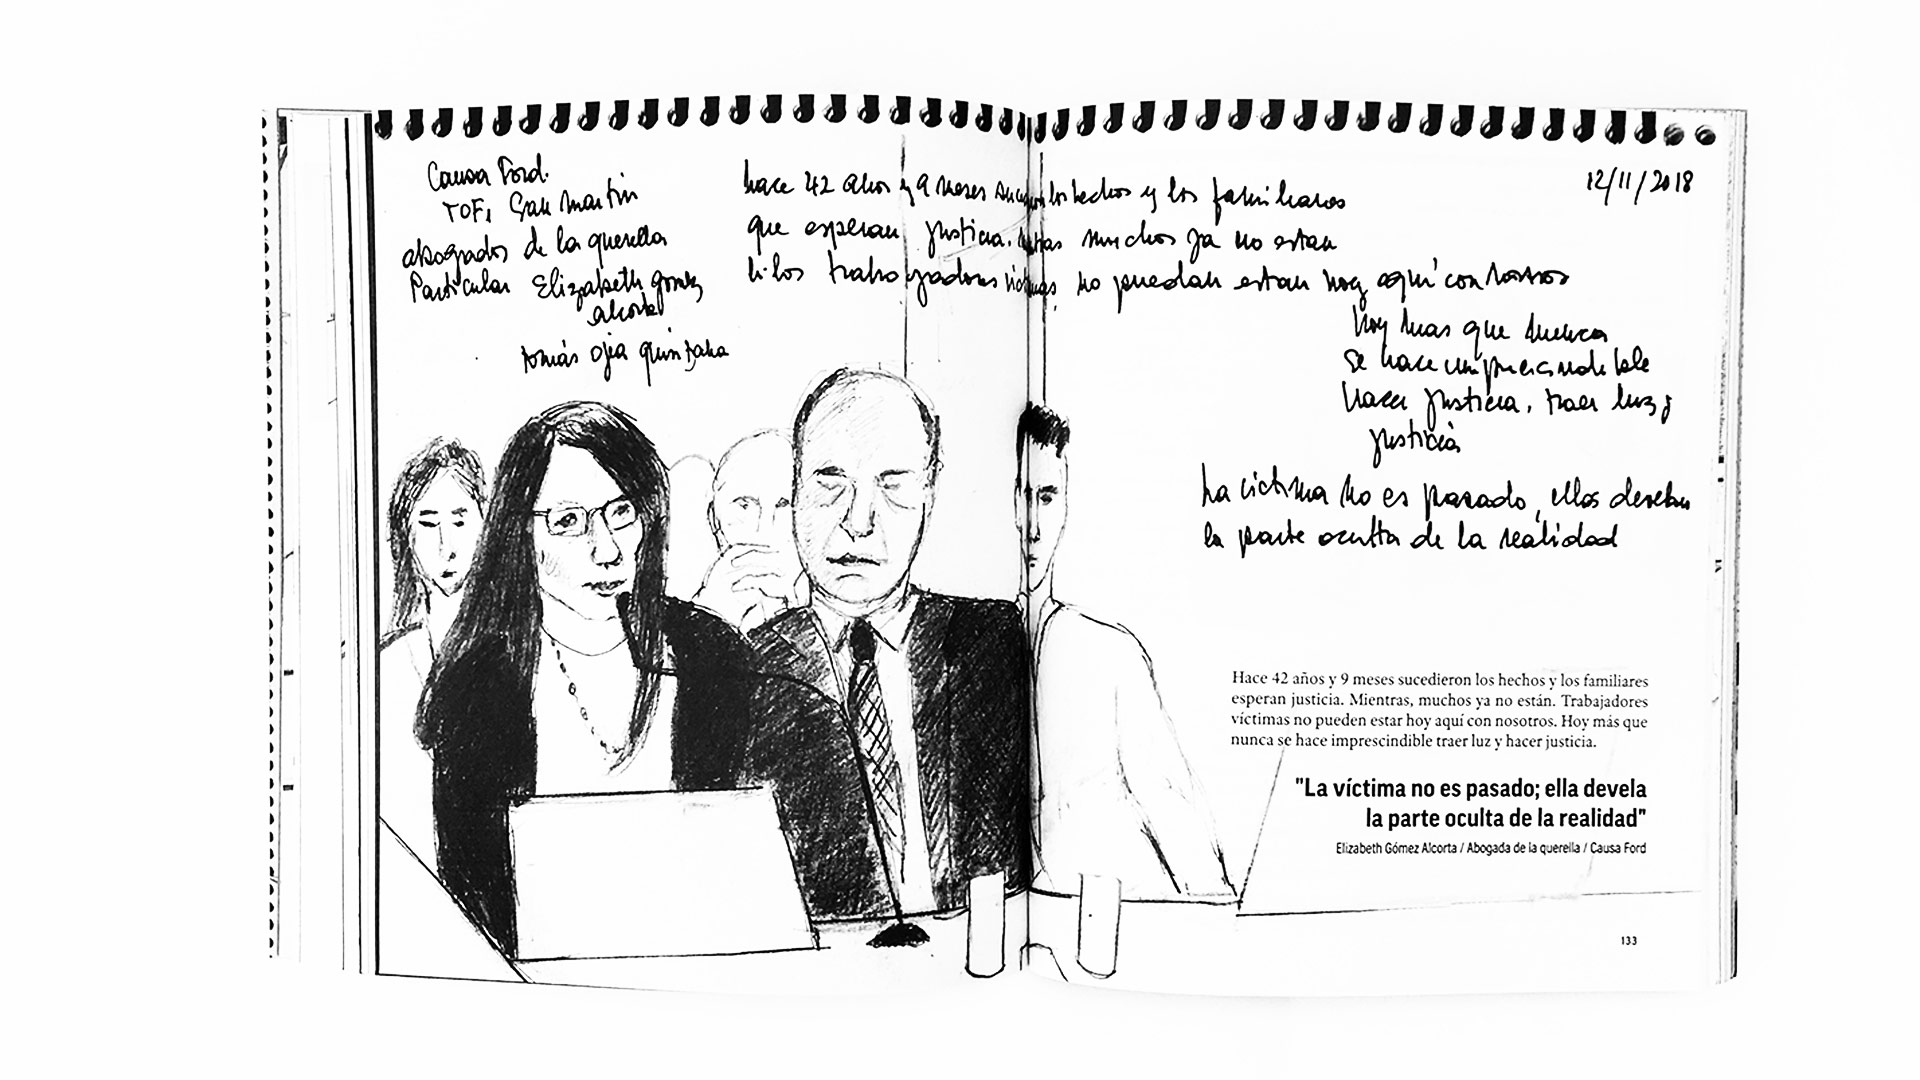 Causa Ford.
TOF1 San Martín
abogados de la querella
Particular Elizabeth gomez
alcorta
tomás ojea quintana
hace 42 años y 9 meses los hechos y los familiares
que esperan justicia. muchos ya no estan
trabajadores no puedan estar hoy aquí con
12/11/2018
hoy mas que nunca
se hace imprescindible
hacer justicia, traer luz y
justicia
La victima no es pasado, ellas develan
la parte oculta de la realidad
Hace 42 años y 9 meses sucedieron los hechos y los familiares
esperan justicia. Mientras, muchos ya no están. Trabajadores
víctimas no pueden estar hoy aquí con nosotros. Hoy más que
nunca se hace imprescindible traer luz y hacer justicia.
"La víctima no es pasado; ella devela
la parte oculta de la realidad"
Elizabeth Gómez Alcorta / Abogada de la querella / Causa Ford
133